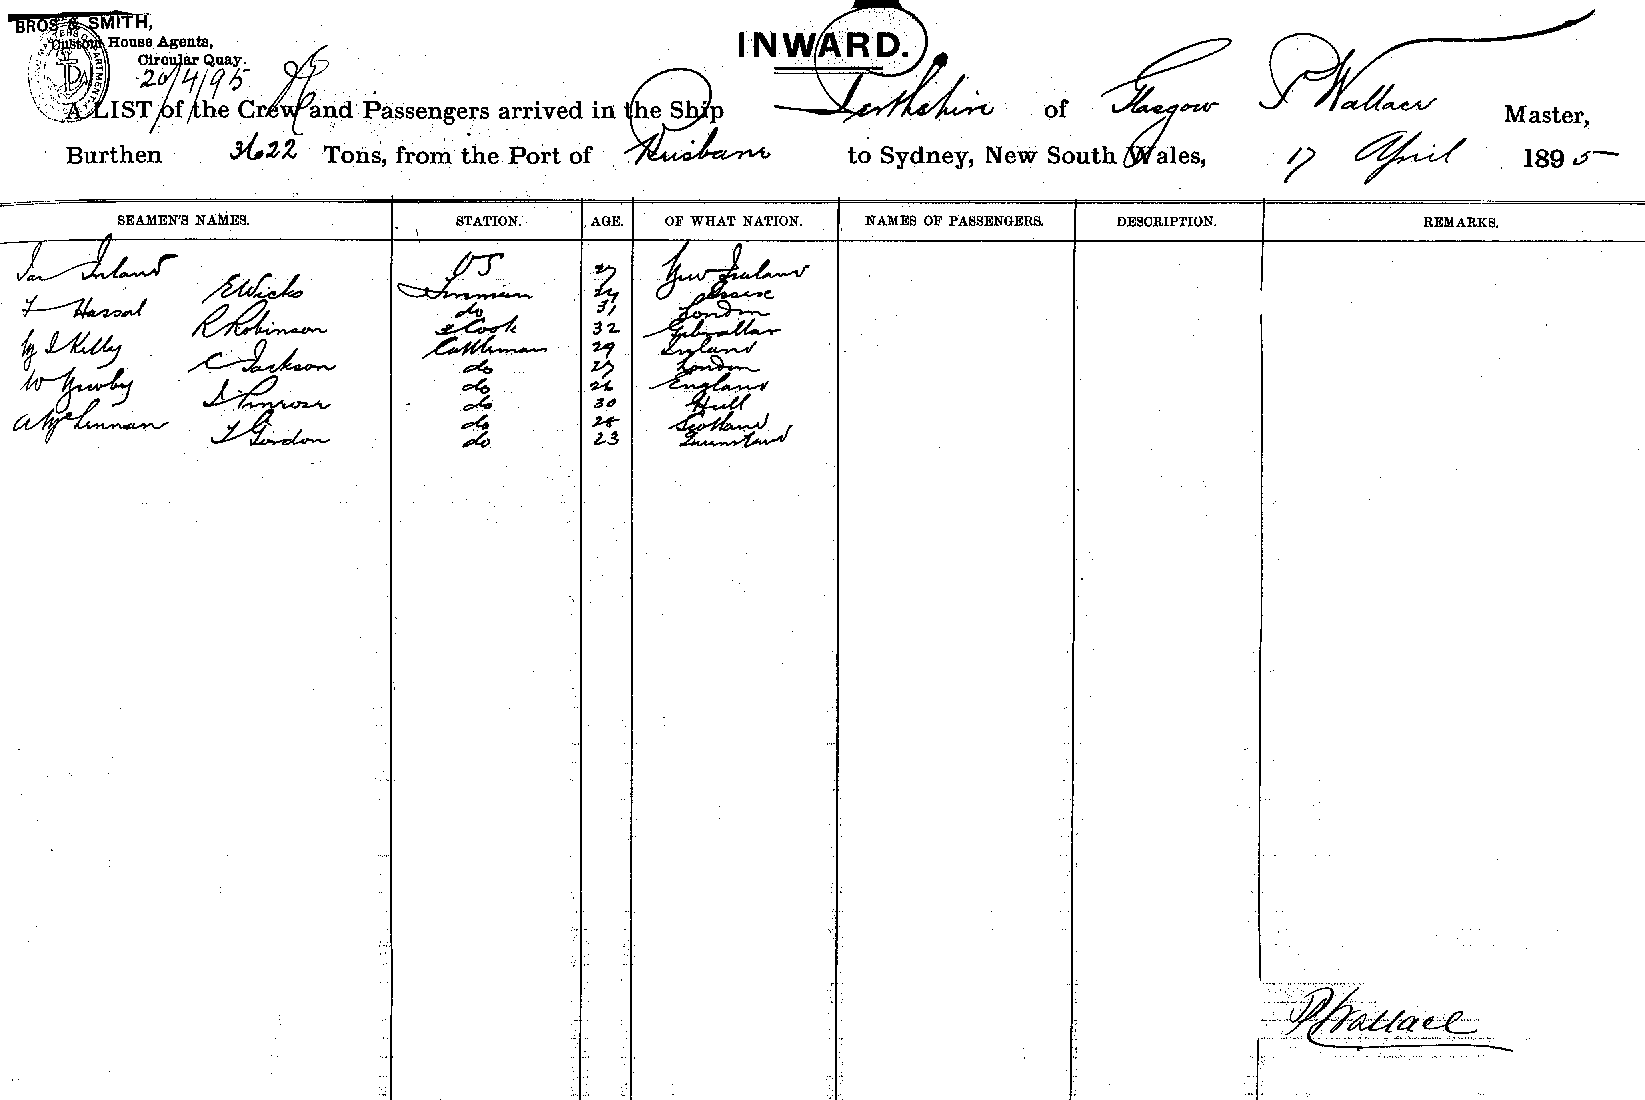 BROS & SMITH,
Custom House Agents,
Circular Quay.
20/4/95
INWARD.
A LIST of the Crew and Passengers arrived in the Ship Perthshire of Glasgow P Wallace Master,
Burthen 3622 Tons, from the Port of Brisbane to Sydney, New South Wales, 17 April 1895
SEAMEN'S NAMES. STATION. AGE. OF WHAT NATION. NAMES OF PASSENGERS. DESCRIPTION. REMARKS.
Ireland OS 27 New Zealand
E Wicks Fireman 24
F Hassal do 31 London
R Robinson Cook 32 Gibraltar
Kelly Cattleman 29 England
C Jackson do 27 London
W Newby do 26 England
Primrose do 30 Hull
A McLennan do 28 Scotland
Gordon do 23 Queensland
P Wallace